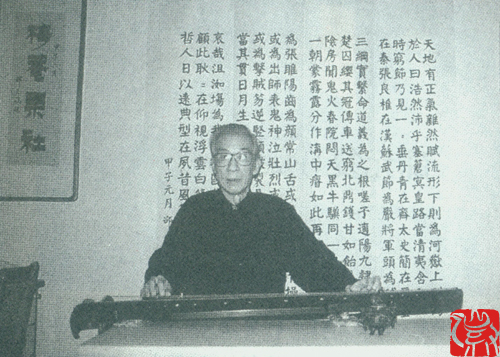 天地有正氣雜然賦流形下則為河嶽上
於人曰浩然沛乎塞蒼冥皇路當清夷含
時窮節乃見一一垂丹青在齊太史簡在
在秦張良椎在漢蘇武節為嚴將軍頭為
三綱實繫命道義為之根嗟予遘陽九隸
楚囚纓其冠傳車送窮北鼎鑊甘如飴
陰房闃鬼火春院閟天黑牛驥同一
一朝蒙霧露分作溝中瘠如此再
為張睢陽齒為顏常山舌或
或為出師表鬼神泣壯烈或
或為擊賊笏逆豎頭破裂
當其貫日月生
哀哉沮洳場為我
顧此耿=在仰視浮雲白
哲人日以遠典型在夙昔風
甲子元月
梅菴琴社